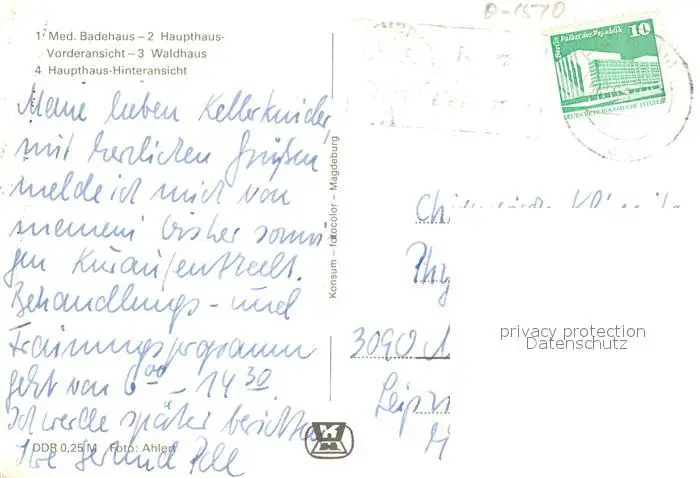 1 Med. Badehaus – 2 Haupthaus-
Vorderansicht – 3 Waldhaus
4 Haupthaus-Hinteransicht
Meine lieben Kellerkinder,
mit herzlichen Grüßen
melde ich mich von
meinem bisher sonni-
gen Kuraufenthalt.
Behandlungs- und
Trainingsprogramm
geht von 6 00 – 14 30.
Ich werde später berichten
Ihre
DDR 0,25 M Foto: Ahlert
Konsum – fotocolor – Magdeburg
Berlin Palast der Republik
10
DEUTSCHE DEMOKRATISCHE REPUBLIK
Phy
3090
Leipz
privacy protection
Datenschutz